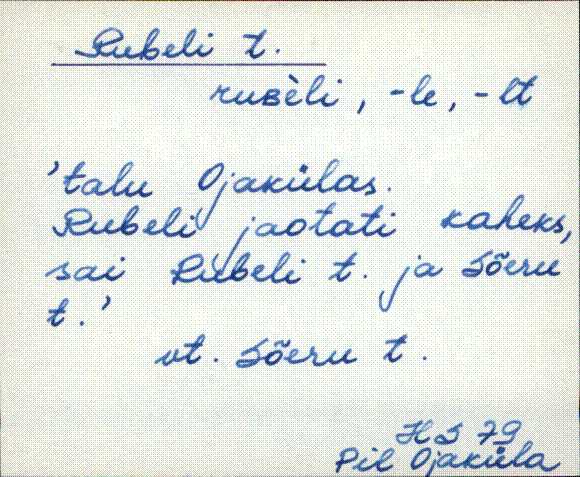 Rubeli t.
ruʙèli, -le, -lt
'talu Ojakülas.
Rubeli jaotati kaheks,
sai Rubeli t. ja Sõeru
t.'
vt. Sõeru t.
H S 79
Pil Ojaküla